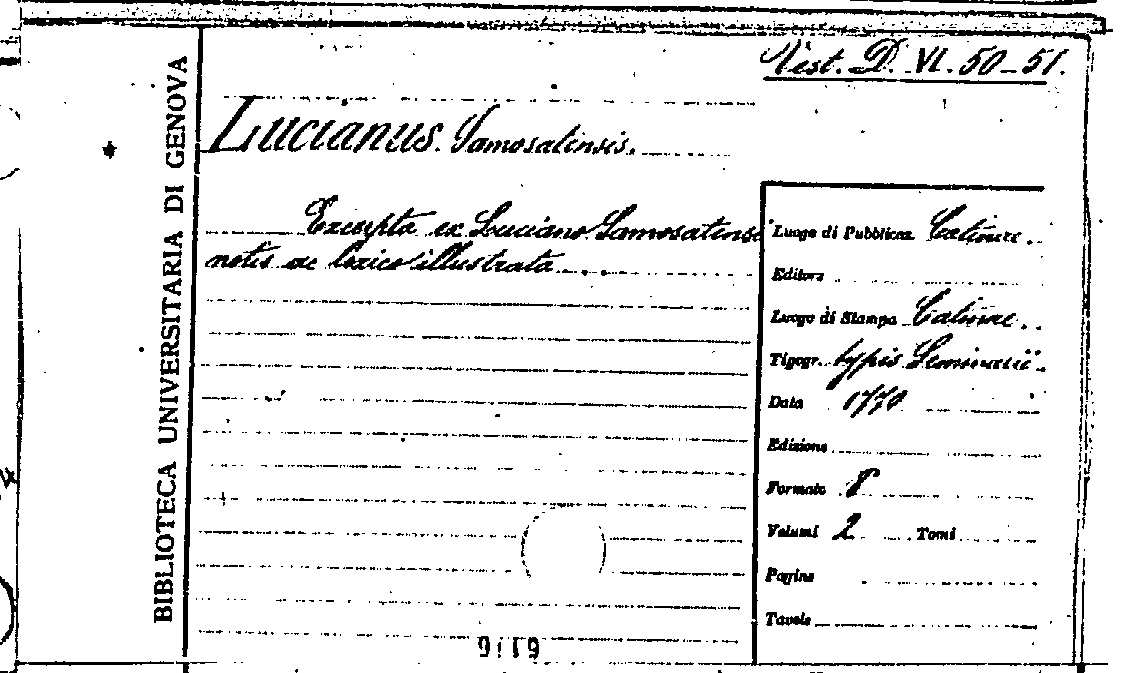 Vest. D. VI. 50-51.
BIBLIOTECA UNIVERSITARIA DI GENOVA
Lucianus Samosatensis.
Excerpta ex Luciano Samosatensi
notis ac lexico illustrata
Luogo di Pubblicaz. Catinae.
Editore
Luogo di Stampa Catinae.
Tipogr. typis Seminarii.
Data 1770
Edizione
Formato 8°
Volumi 2 Tomi
Pagine
Tavole